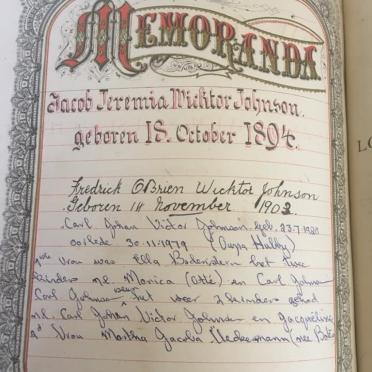 MEMORANDA
Jacob Jeremia Wicktor Johnson.
geboren 18. October 1894.
Fredrick OBrien Wicktor Johnson
Geboren 11 November 1903
Carl Johan Victor Johnson, geb. 23.7.1920
oorlede 30.11.1979 (Oupa Hully)
Vrou was Ella Bodenstein het twee
kinders nl. Monica (Ottie) en Carl Johan
Carl Johan het weer 2 kinders gehad
nl. Carl Johan Victor Johnson en Jacqueline
Vrou Martha Jacoba
L